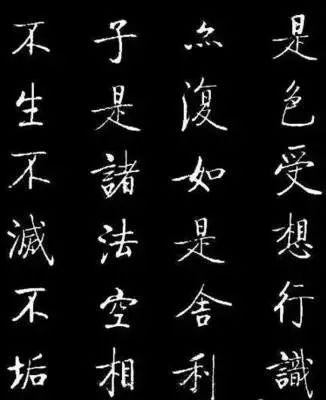 是色受想行識
亦復如是舍利
子是諸法空相
不生不滅不垢